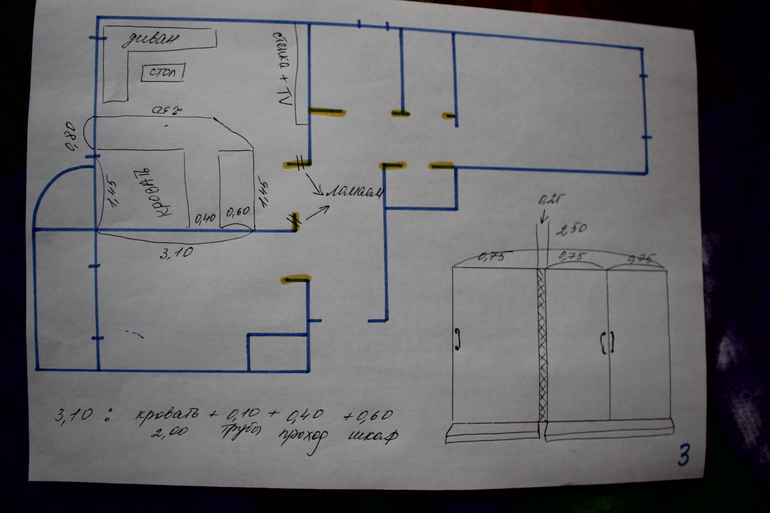 диван
стол
стенка + TV
2,50
0,80
1,45
кровать
0,40
0,60
1,45
3,10
ломаем
0,25
2,50
0,75
0,75
0,75
3,10 : кровать + 0,10 + 0,40 + 0,60
2,00 трубы проход шкаф
3